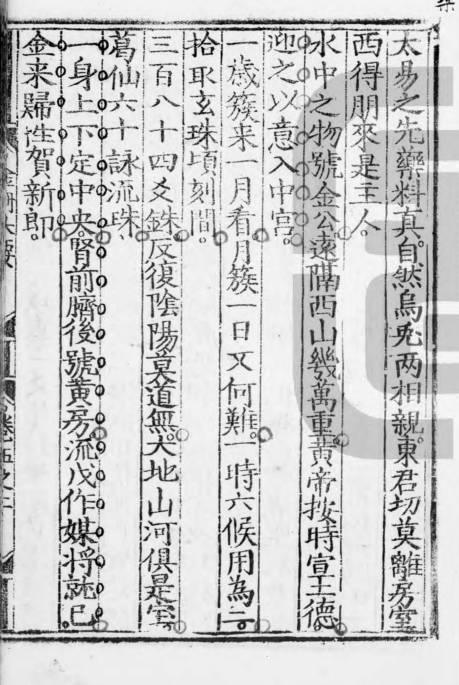 太易之先藥料真自然烏兎两相親東君切莫離房室
西得朋來是主人
水中之物號金公遠隔西山幾萬重黃帝按時宣王德
迎之以意入中宮
一歲簇来一月看月簇一日又何難一時六候用為二
拾取玄珠頃刻間
三百八十四爻銖反復陰陽莫道無大地山河俱是寳
葛仙六十詠流珠
一身上下定中央腎前臍後號黃房流戊作媒將就己
金来歸性賀新郎
金丹大要
卷五之